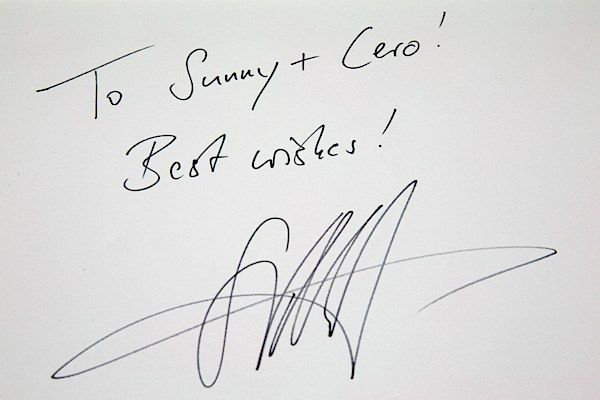 To Sunny + Cero!
Best wishes!